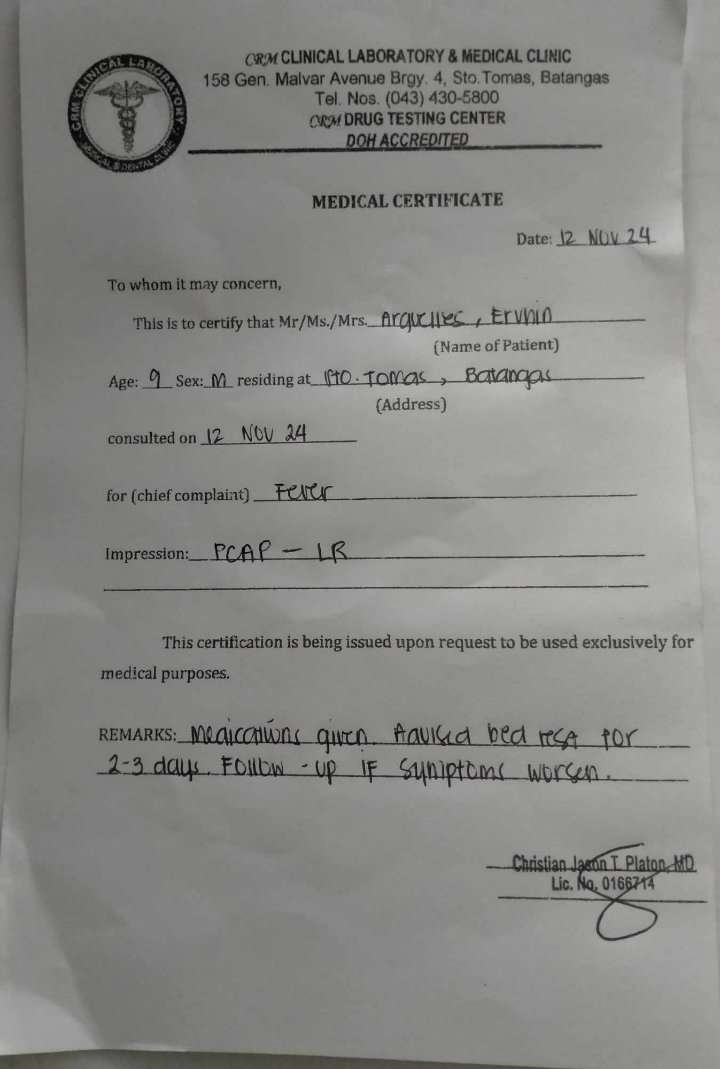 CRM CLINICAL LABORATORY
MEDICAL & DENTAL CLINIC
CRM CLINICAL LABORATORY & MEDICAL CLINIC
158 Gen. Malvar Avenue Brgy. 4, Sto. Tomas, Batangas
Tel. Nos. (043) 430-5800
CRM DRUG TESTING CENTER
DOH ACCREDITED
MEDICAL CERTIFICATE
Date: 12 NOV 24
To whom it may concern,
This is to certify that Mr/Ms./Mrs. Arguelles, Ervhin
(Name of Patient)
Age: 9 Sex: M residing at Sto. Tomas, Batangas
(Address)
consulted on 12 NOV 24
for (chief complaint) Fever
Impression: PCAP - LR
This certification is being issued upon request to be used exclusively for
medical purposes.
REMARKS: Medications given. Advised bed rest for
2-3 days. Follow-up if symptoms worsen.
Christian Jason T. Platon, MD
Lic. No. 0166714